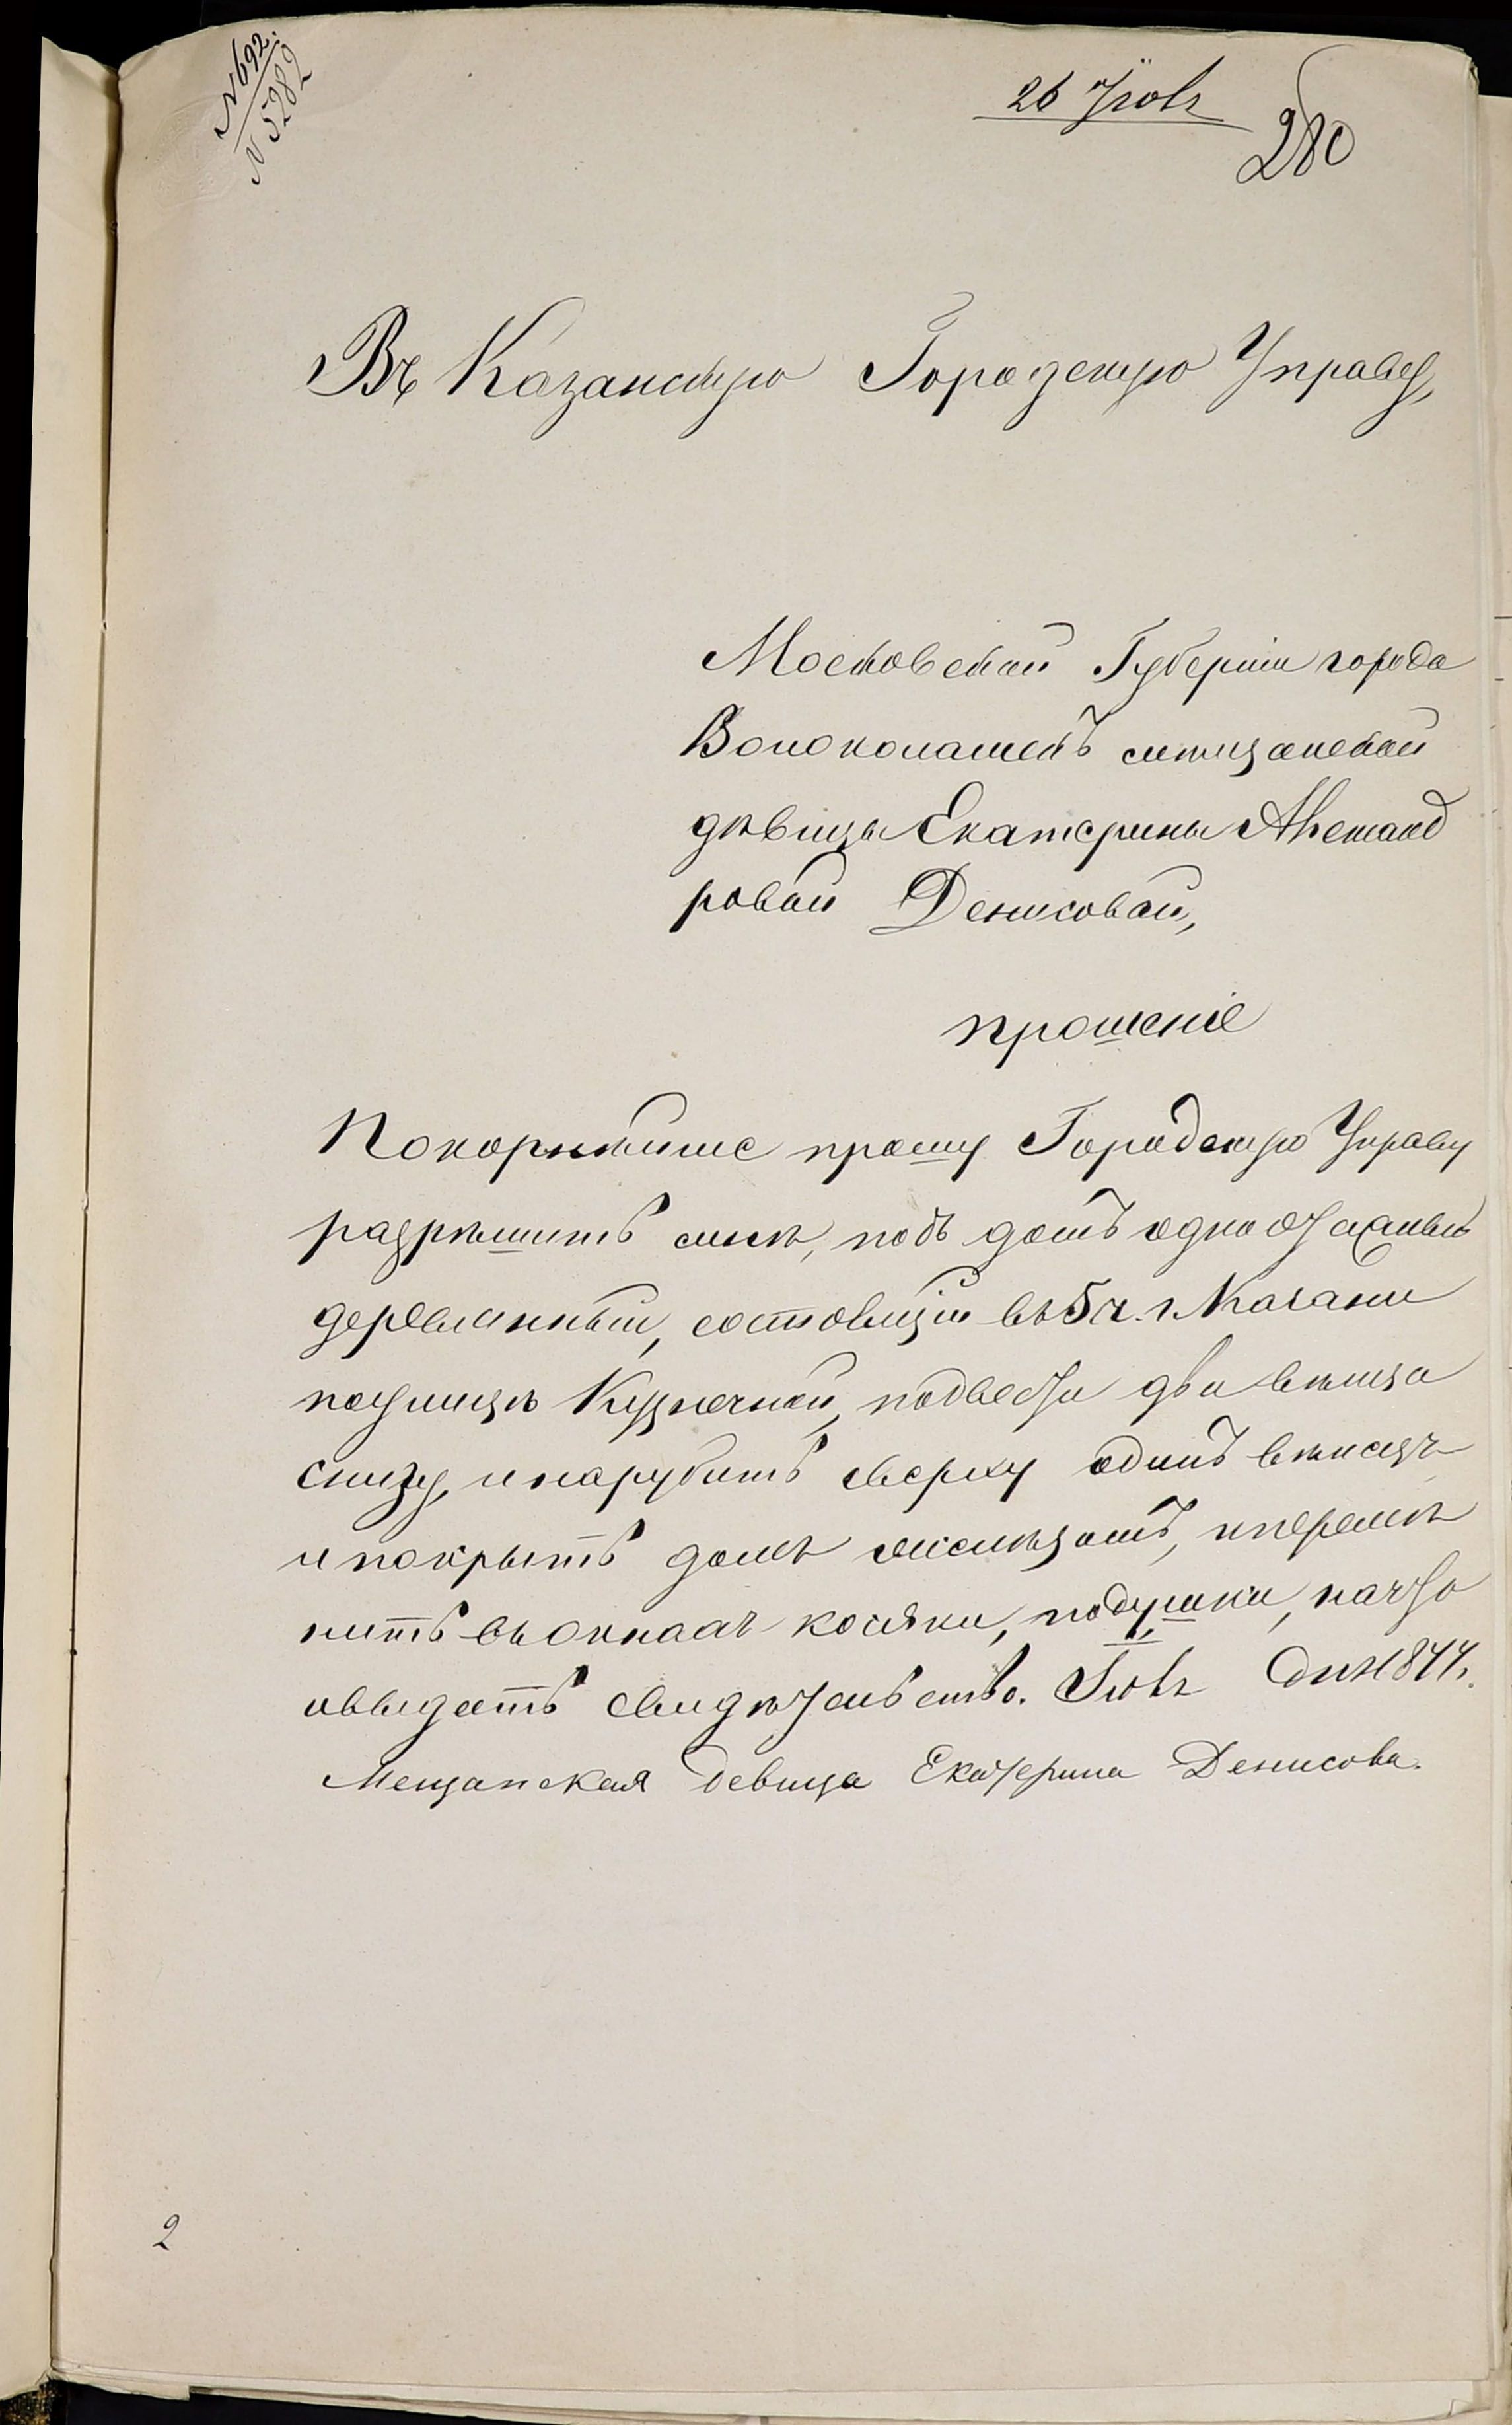 № 692.
№ 5282
26 Іюля
280
Въ Казанскую Городскую Управу,
Московской Губерніи города
Волоколамскъ мещанской
дѣвицы Екатерины Александ
ровой Денисовой,
прошеніе
Покорнѣйше прошу Городскую Управу
разрѣшить мнѣ, подъ домъ одноэтажный
деревянный, состоящій въ 5 ч. г. Казани
поулицѣ Кузнечной, подвести два вѣнца
снизу, инарубить сверху одинъ вѣнецъ
ипокрыть домъ желѣзомъ, иперемѣ
нить въ окнахъ косяки, подушки, начто
ивыдать свидѣтельство. Іюля дня 1877.
Мещанская девица Екатерина Денисова.
2